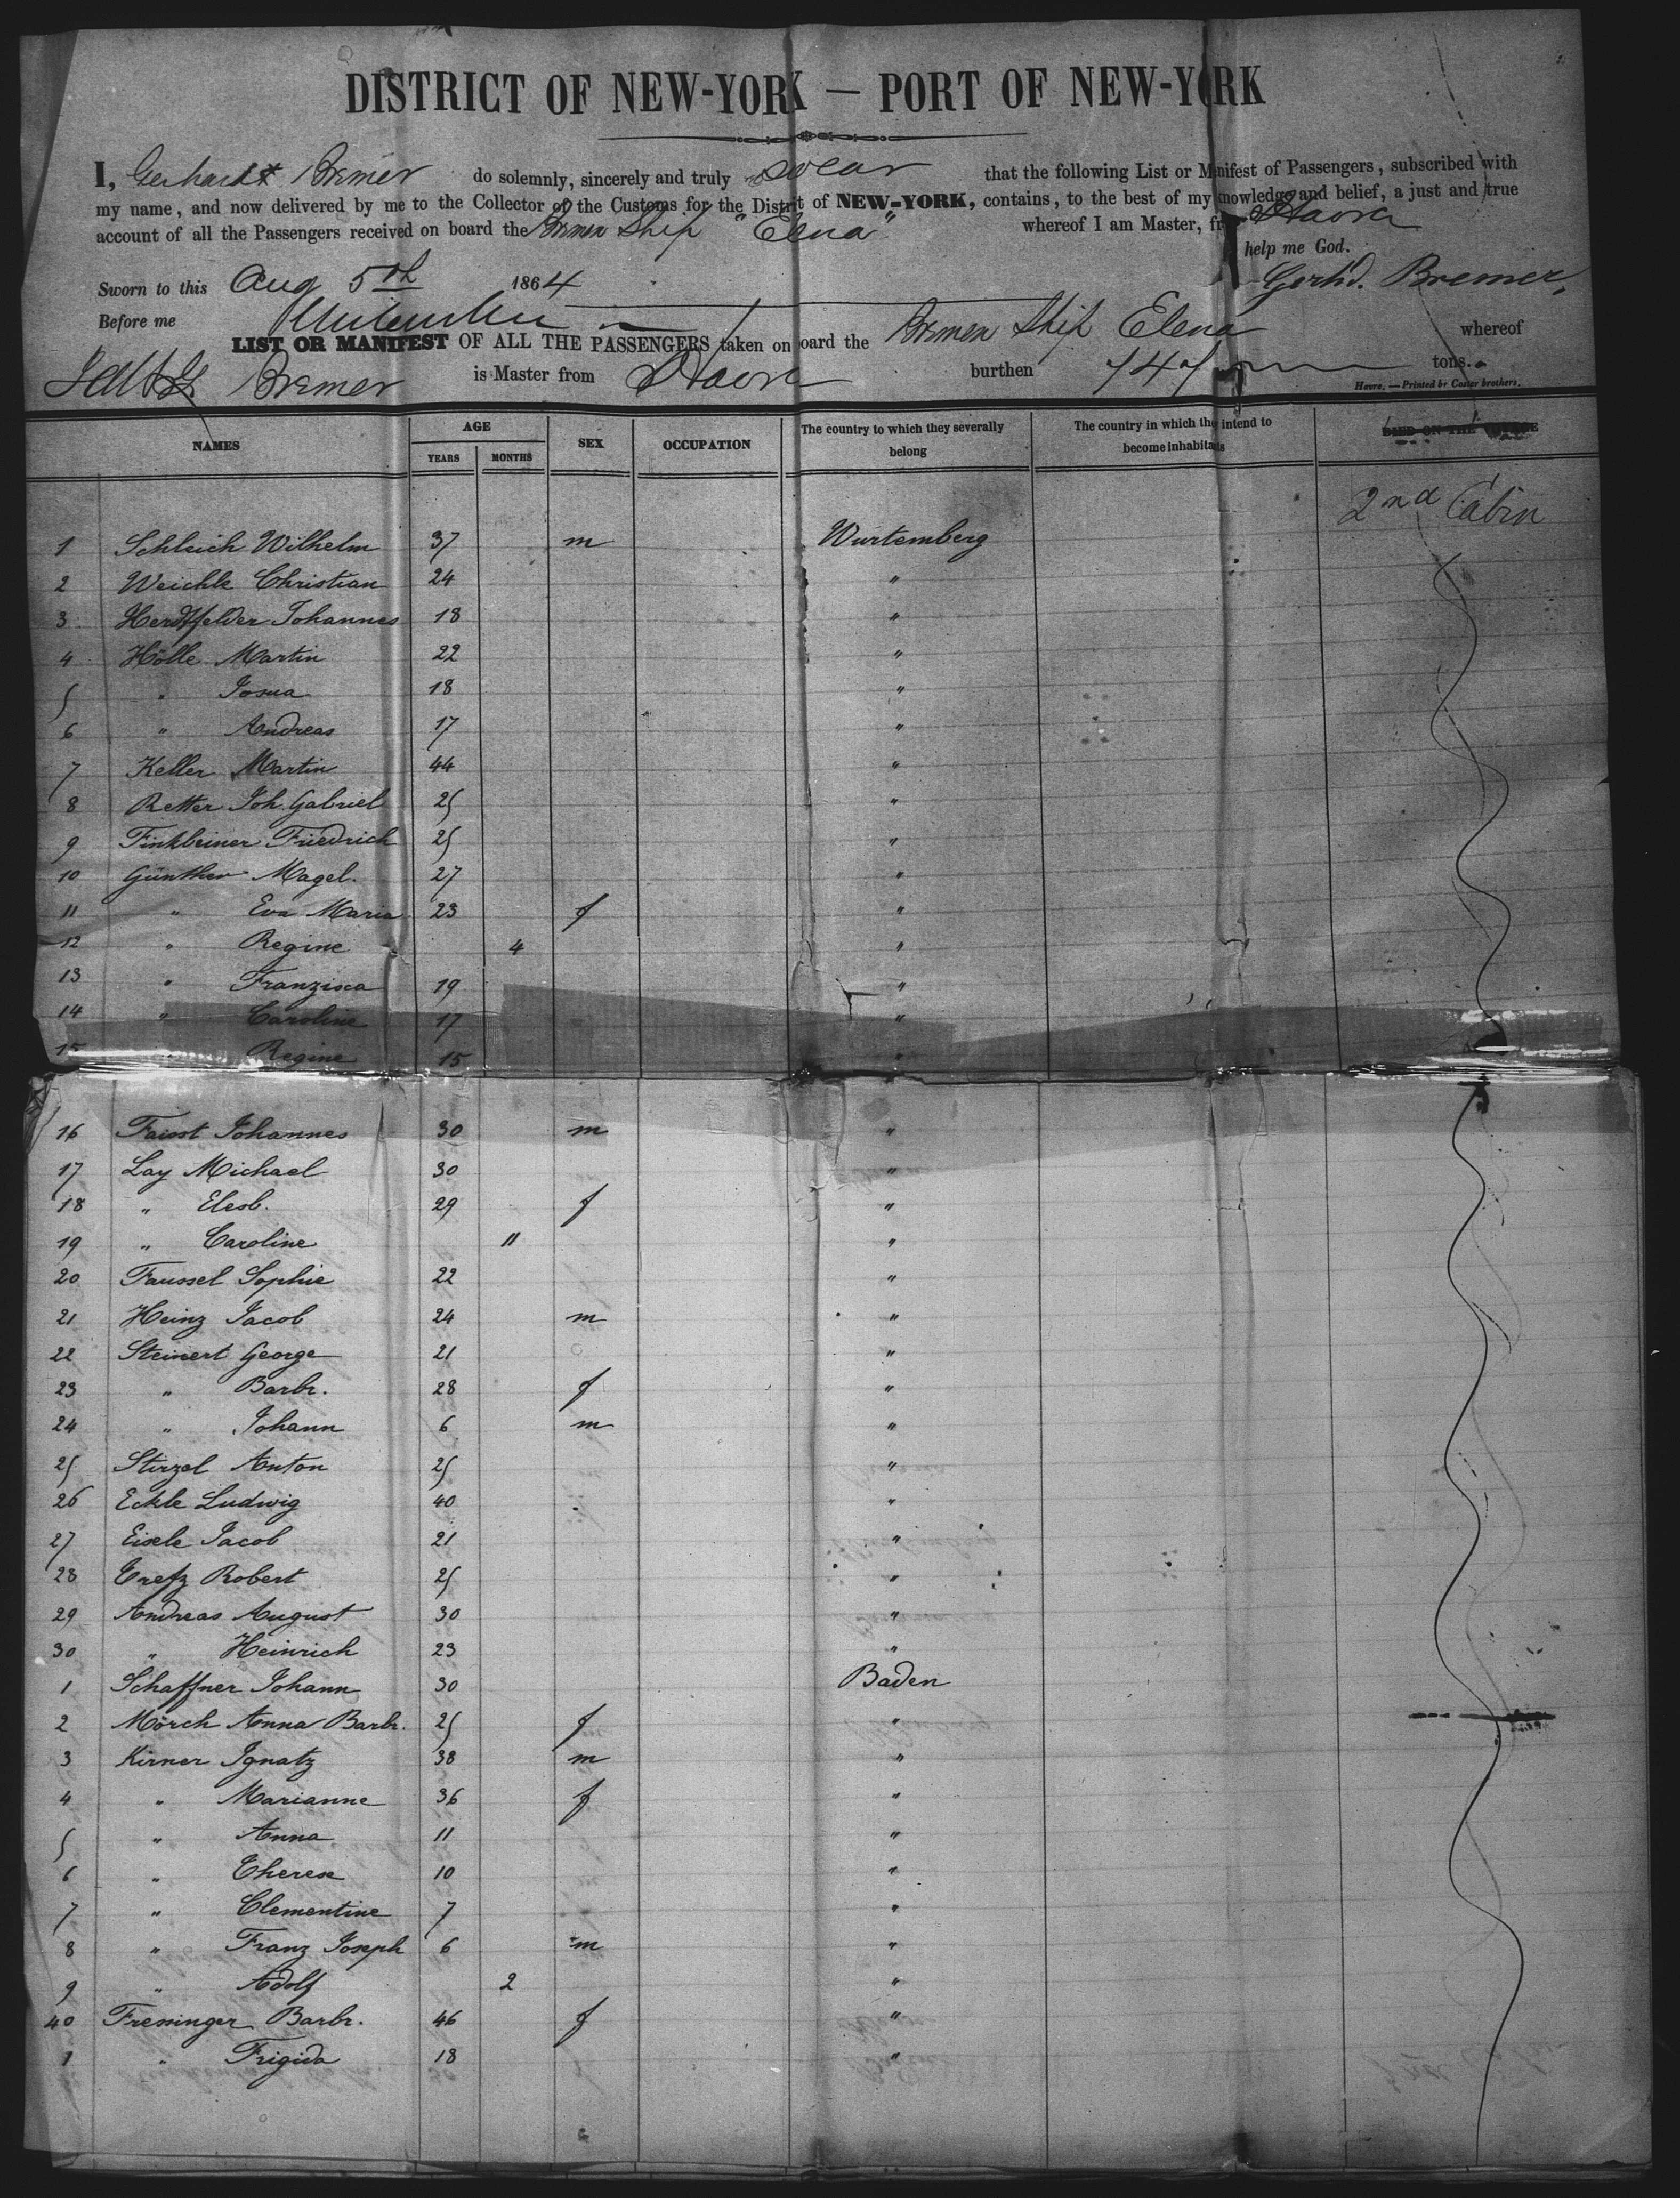 DISTRICT OF NEW-YORK — PORT OF NEW-YORK
I, Gerhardt Bremer do solemnly, sincerely and truly swear that the following List or Manifest of Passengers, subscribed with
my name, and now delivered by me to the Collector of the Customs for the District of NEW-YORK, contains, to the best of my knowledge and belief, a just and true
account of all the Passengers received on board the Bremen Ship "Elena" whereof I am Master, from Havre
help me God.
Sworn to this Aug 5th 1864 Gerhd. Bremer,
Before me
LIST OR MANIFEST OF ALL THE PASSENGERS taken on board the Bremen Ship Elena whereof
Bremer is Master from Havre burthen 747 tons.
Havre. — Printed by Caster brothers.
NAMES AGE YEARS MONTHS SEX OCCUPATION The country to which they severally belong The country in which they intend to become inhabitants DIED ON THE VOYAGE
2nd Cabin
1 Schleich Wilhelm 37 m Wurtemberg
2 Weichle Christian 24 "
3 Herdtfelder Johannes 18 "
4 Hölle Martin 22 "
5 " Josua 18 "
6 " Andreas 17 "
7 Keller Martin 44 "
8 Retter Joh. Gabriel 25 "
9 Finkbeiner Friedrich 25 "
10 Günther Magel. 27 "
11 " Eva Maria 23 f "
12 " Regine 4 "
13 " Franzisca 19 "
14 " Caroline 17 "
15 " Regine 15 "
16 Faisst Johannes 30 m "
17 Lay Michael 30 "
18 " Elesb. 29 f "
19 " Caroline 11 "
20 Faussel Sophie 22 "
21 Heinz Jacob 24 m "
22 Steinert George 21 "
23 " Barbr. 28 f "
24 " Johann 6 m "
25 Stirzel Anton 25 "
26 Eckle Ludwig 40 "
27 Eisele Jacob 21 "
28 Trefz Robert 25 "
29 Andreas August 30 "
30 " Heinrich 23 "
1 Schaffner Johann 30 Baden
2 Mörch Anna Barbr. 25 f "
3 Kirner Ignatz 38 m "
4 " Marianne 36 f "
5 " Anna 11 "
6 " Therese 10 "
7 " Clementine 7 "
8 " Franz Joseph 6 m "
9 " Adolf 2 "
40 Fressinger Barbr. 46 f "
1 " Frigida 18 "